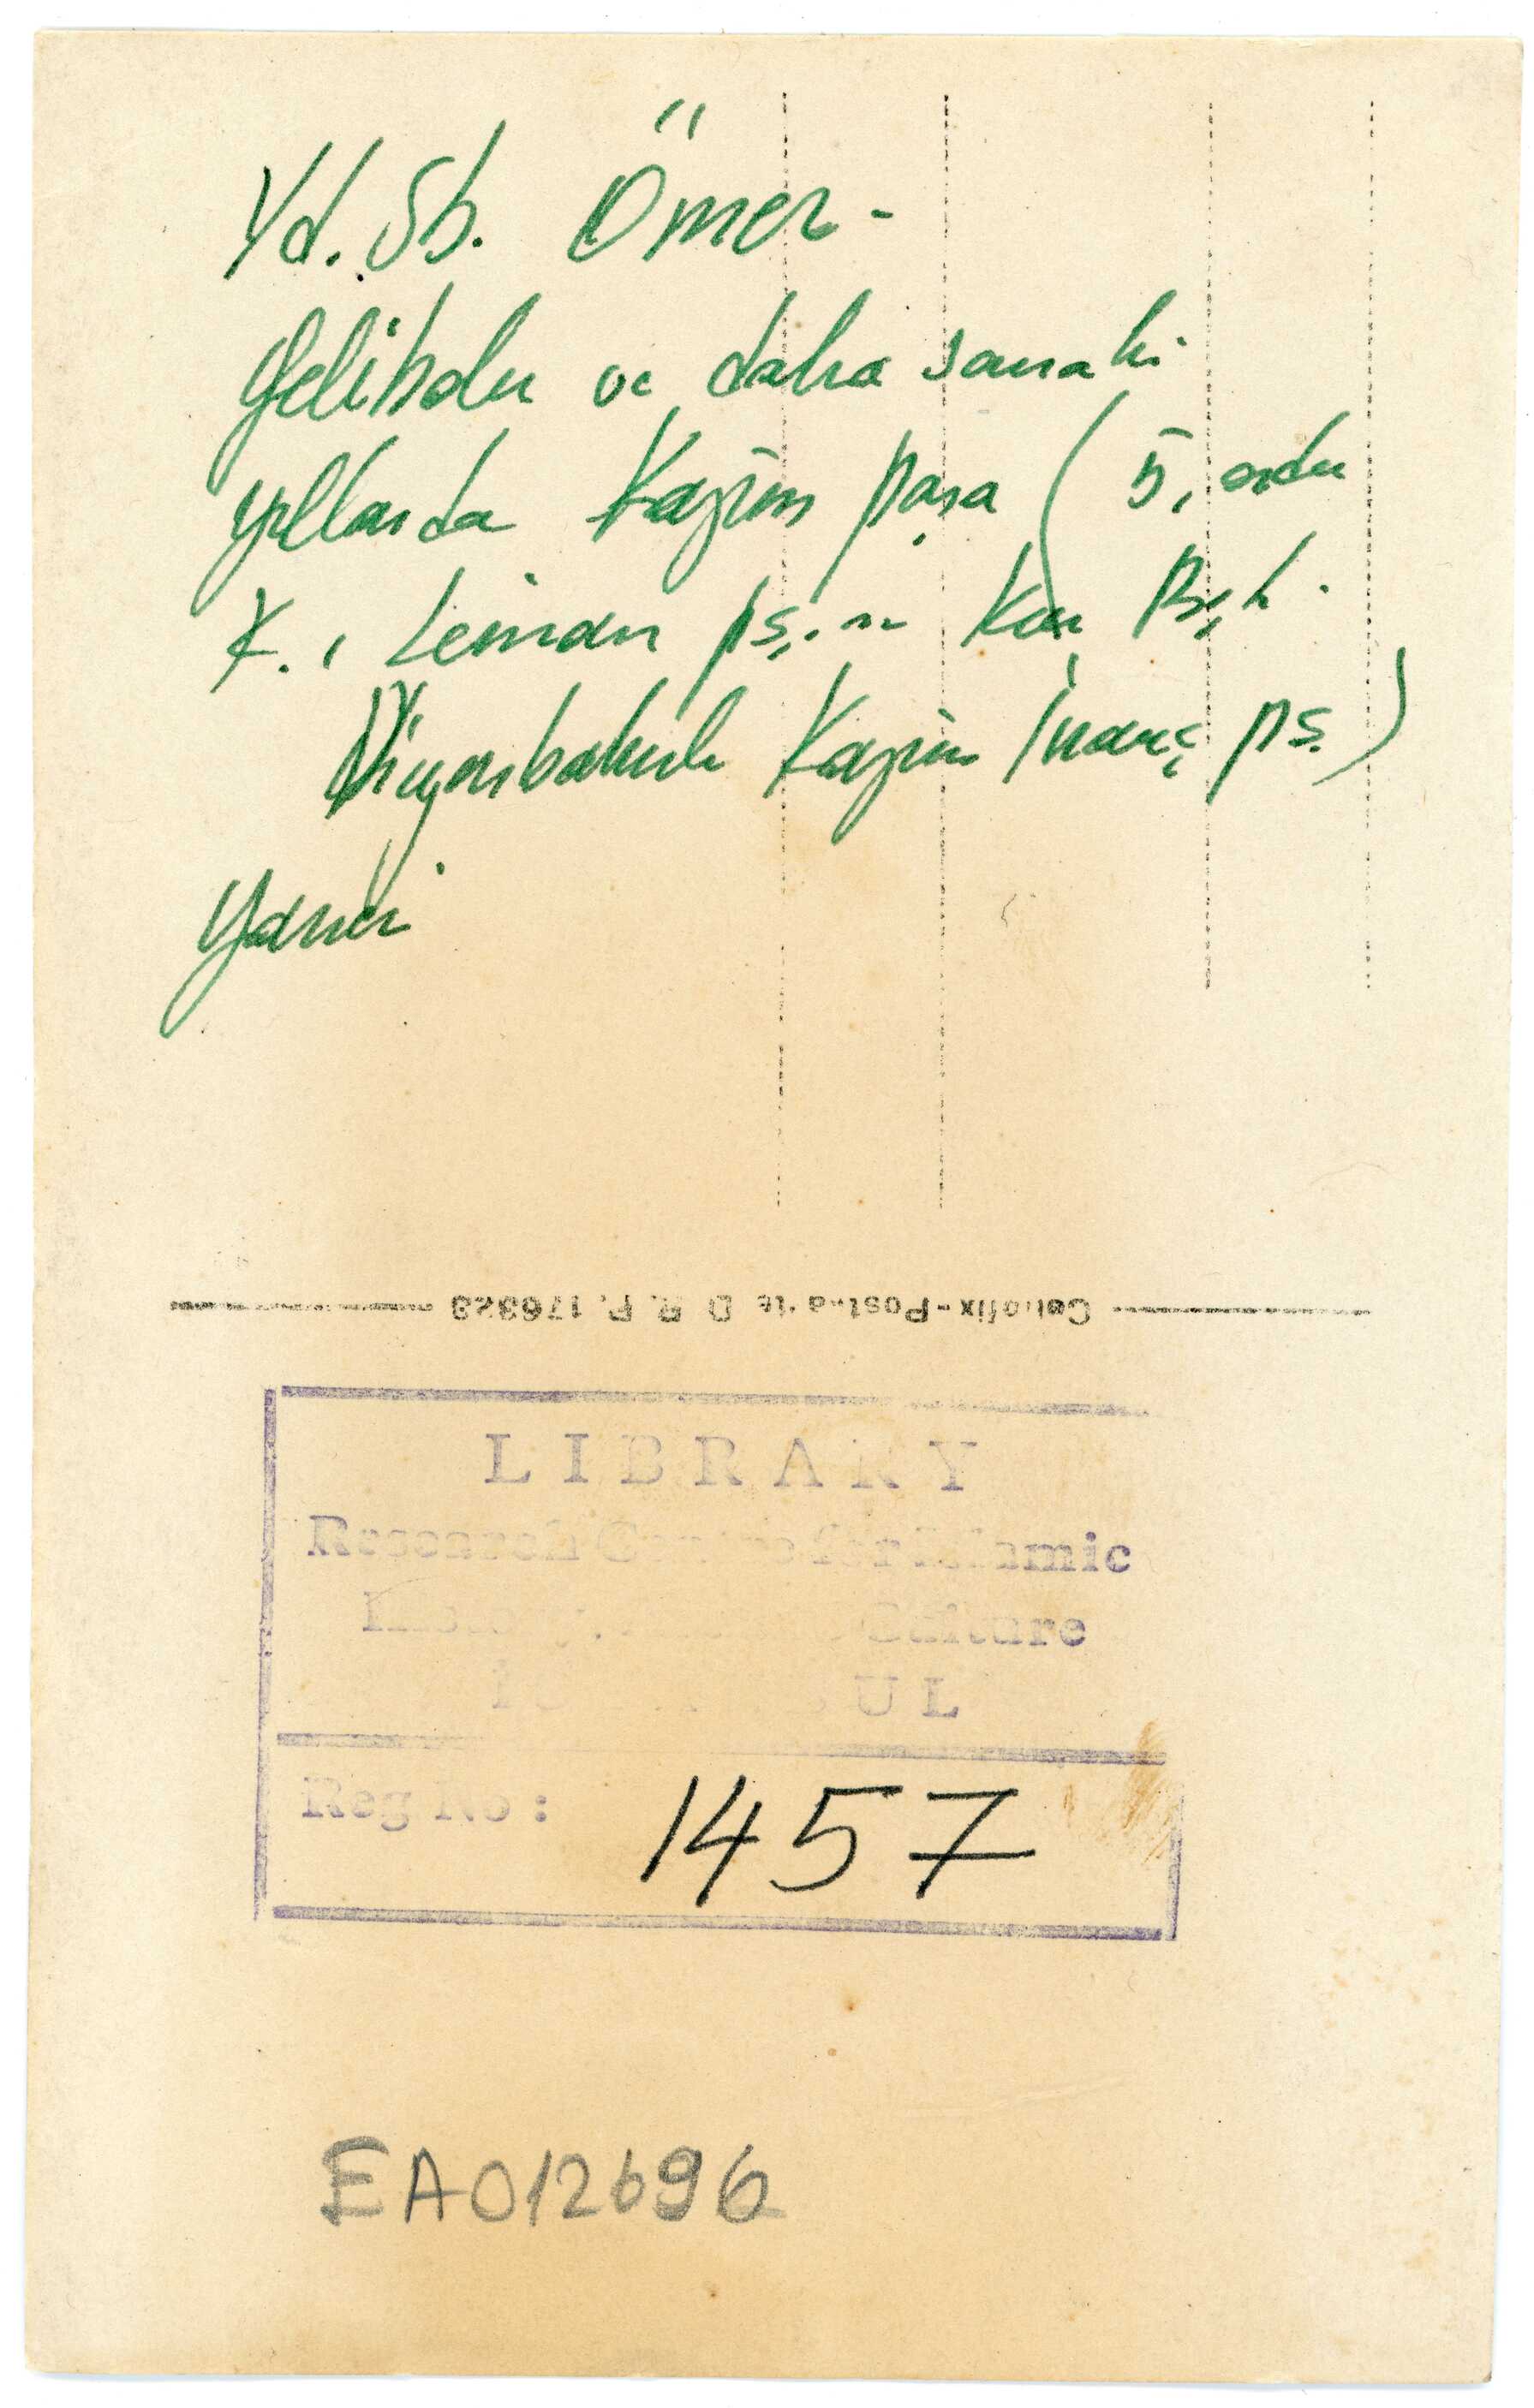 Yd. Sb. Ömer -
Gelibolu ve daha sonraki
yıllarda Kazım paşa ( 5. ordu
K. ı Leiman pş. ın Kur Bşk.
Diyarbakırlı Kazım İnanç pş. )
Yaveri
Cellofix-Postkarte D. R. P. 176323
LIBRARY
Research Centre for Islamic
History, Culture
ISTANBUL
Reg No : 1457
EA012696